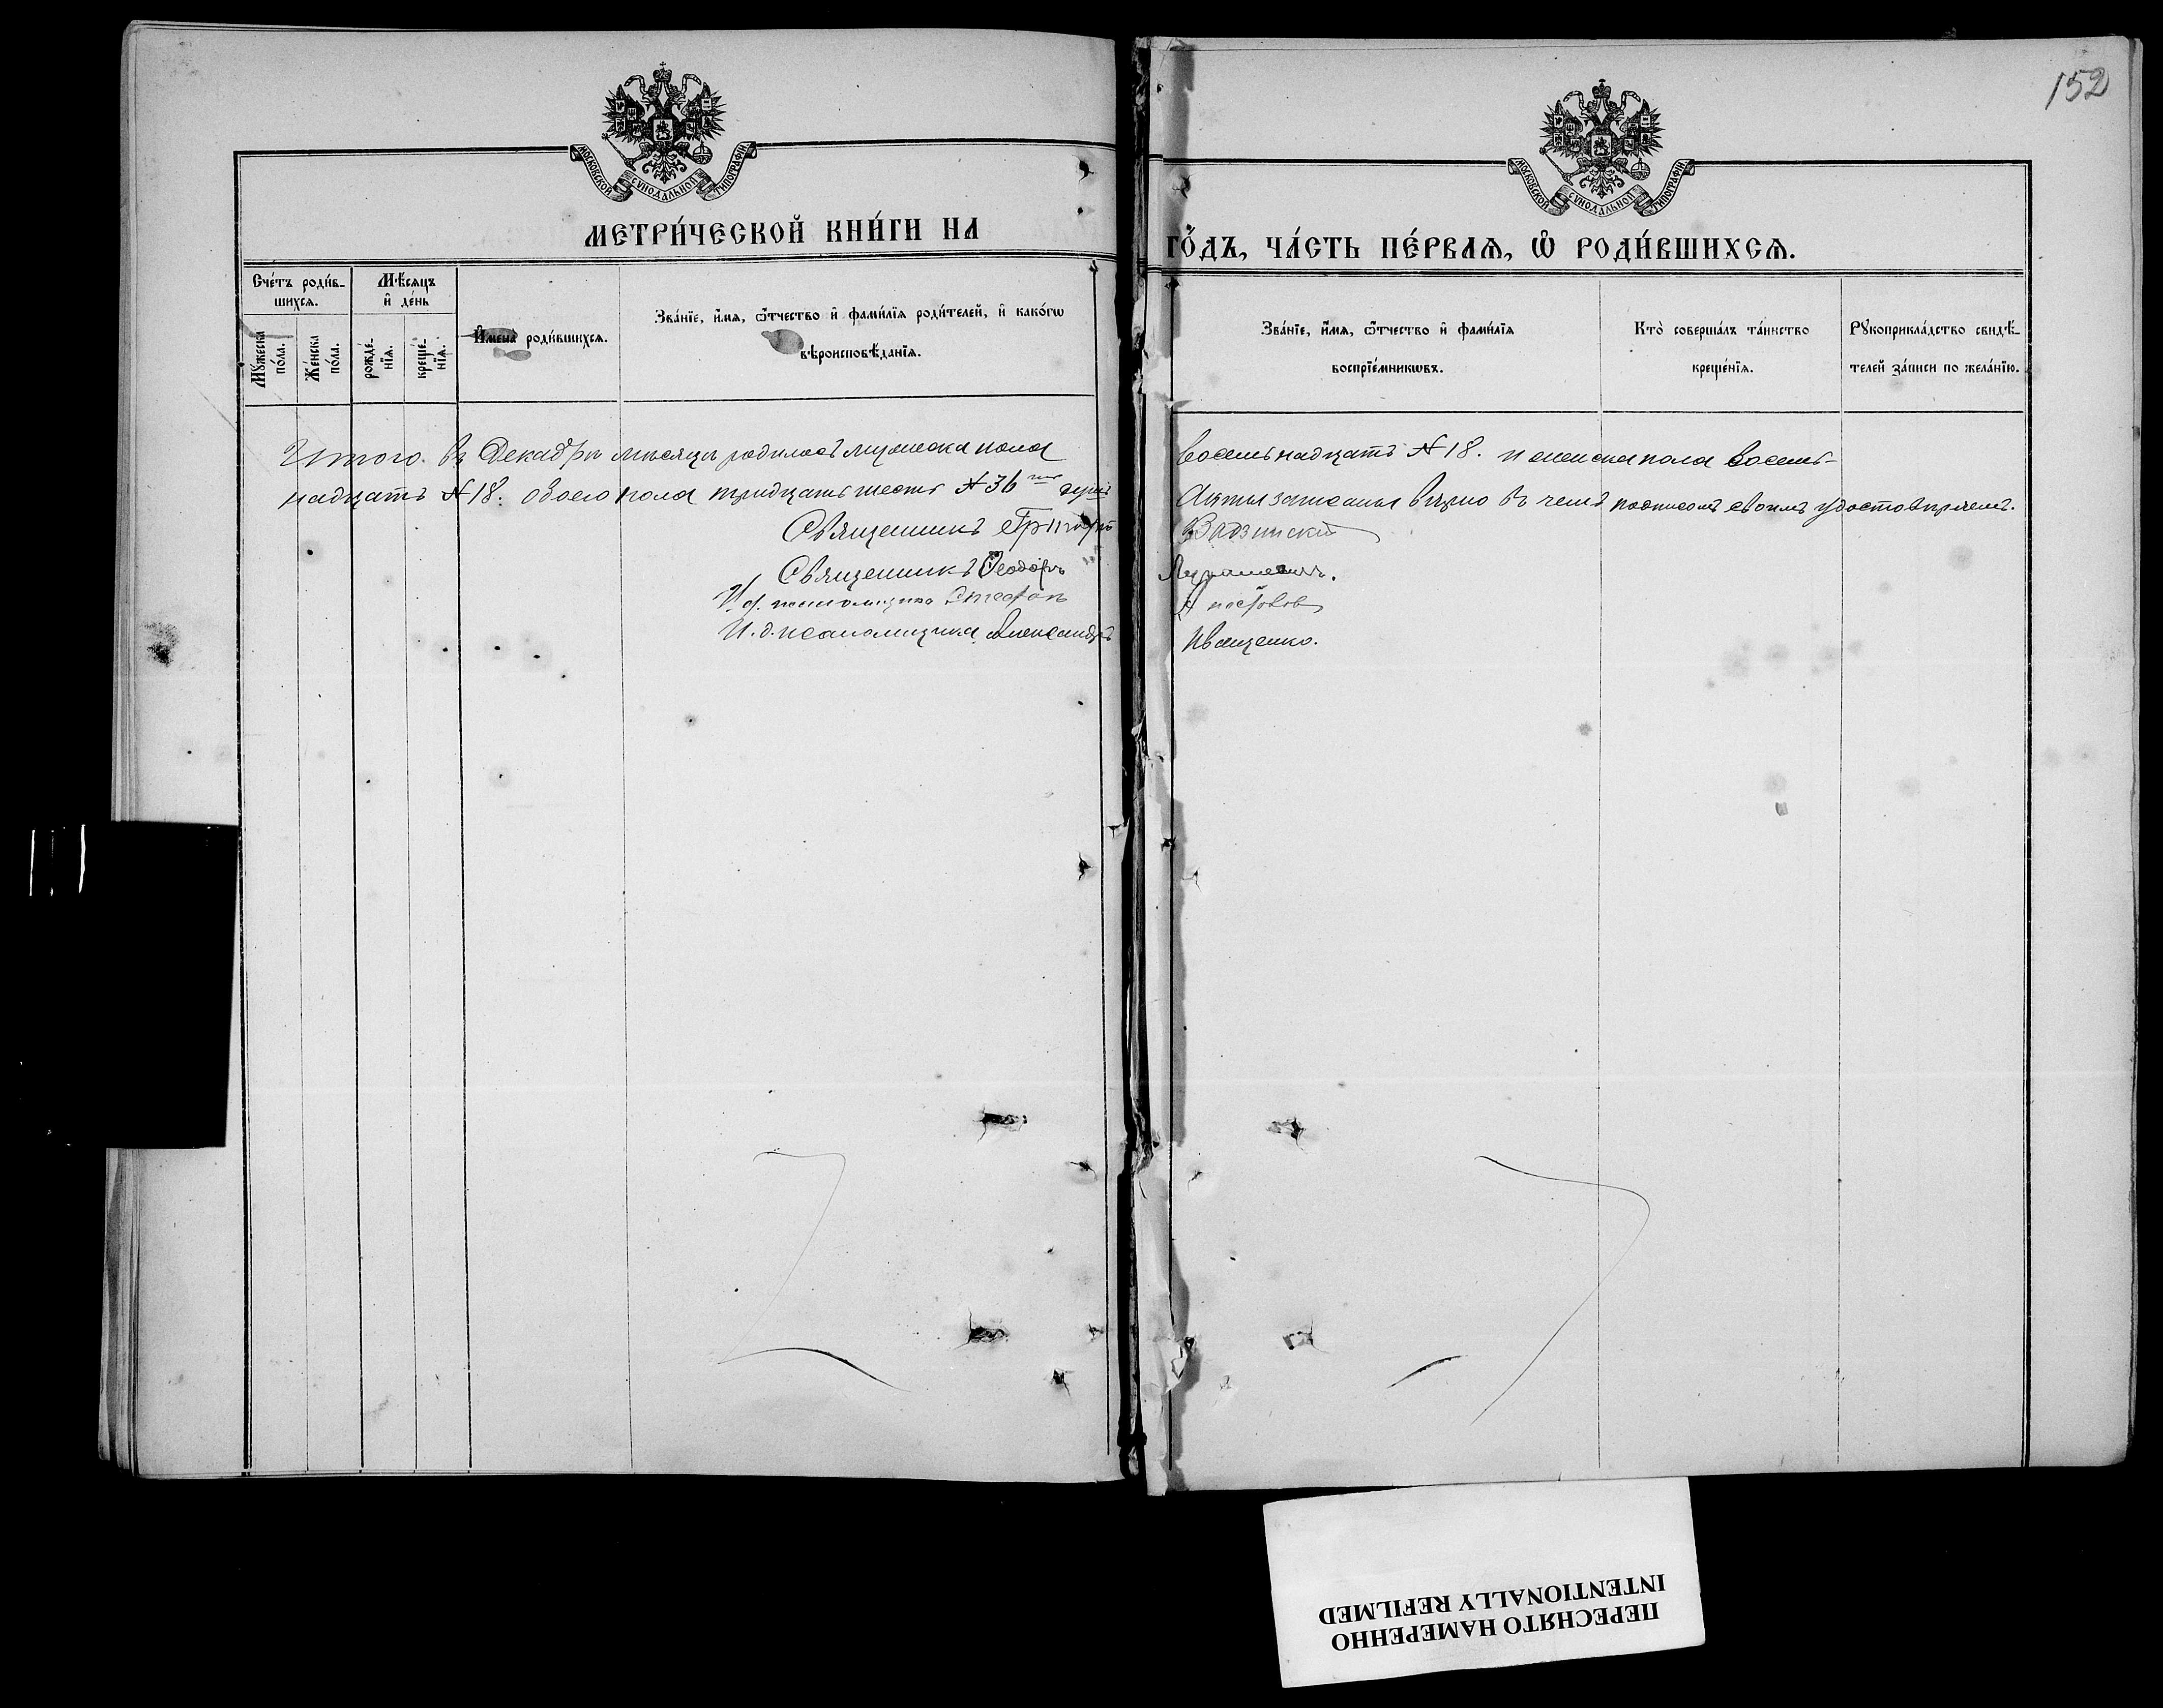 152
МОСКОВСКОЙ СѴНОДАЛЬНОЙ ТИПОГРАФІИ
МОСКОВСКОЙ СѴНОДАЛЬНОЙ ТИПОГРАФІИ
МЕТРИ́ЧЕСКОЙ КНИ́ГИ НА
ГО́ДЪ, ЧА́СТЬ ПЕ́РВАѦ, Ѡ҆ РОДИ́ВШИХСѦ.
Сче́тъ роди́в-
шихсѧ.
Мꙋ́жеска
по́ла.
Же́нска
по́ла.
Мѣ́сѧцъ
и҆ де́нь
рожде́-
нїѧ.
креще́-
нїѧ.
И҆мена̀ роди́вшихсѧ.
Зва́нїе, и҆́мѧ, ѻ҆́тчество и҆ фами́лїѧ роди́телей, и҆ како́гѡ
вѣроисповѣ́данїѧ.
Зва́нїе, и҆́мѧ, ѻ҆́тчество и҆ фами́лїѧ
воспрїе́мникѡвъ.
Кто̀ соверша́лъ та́инство
креще́нїѧ.
Рꙋкоприкла́дство свидѣ́-
телей за́писи по жела́нїю.
Итого. въ Декабрѣ мѣсяцѣ родилось мужеска пола восемьнадцать №18. и женска пола восемь-
надцать №18. обоего пола тридцать шесть №36 Акты записаны вѣрно въ чемъ подписомъ своимъ удостовѣряемъ.
Священникъ Григорій
Священникъ Ѳеодоръ
И. д. псаломщика Стефанъ
И. д. псаломщика Александръ Иващенко.
ПЕРЕСНЯТО НАМЕРЕННО
INTENTIONALLY REFILMED